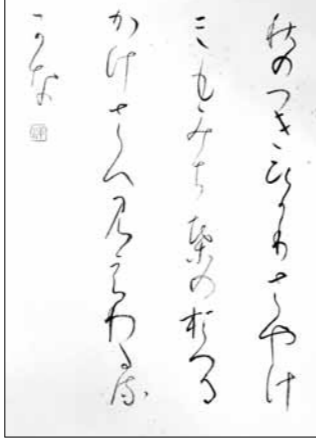 秋のつきひかりさやけ
みもみち葉のおつる
かけさへ見えわたる
かな